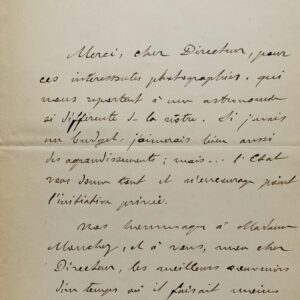 Merci, cher Directeur, pour
ces interessantes photographies, qui
nous reportent à une astronomie
si différente de la nôtre. Si j'avais
un budget, j'aimerais bien aussi
des agrandissements ; mais... l'Etat
vous donne tant et n'encourage point
l'initiative privée.
Nos hommages à Madame
Mouchez, et à vous, mon cher
Directeur, les meilleurs souvenirs
d'un temps où il faisait moins